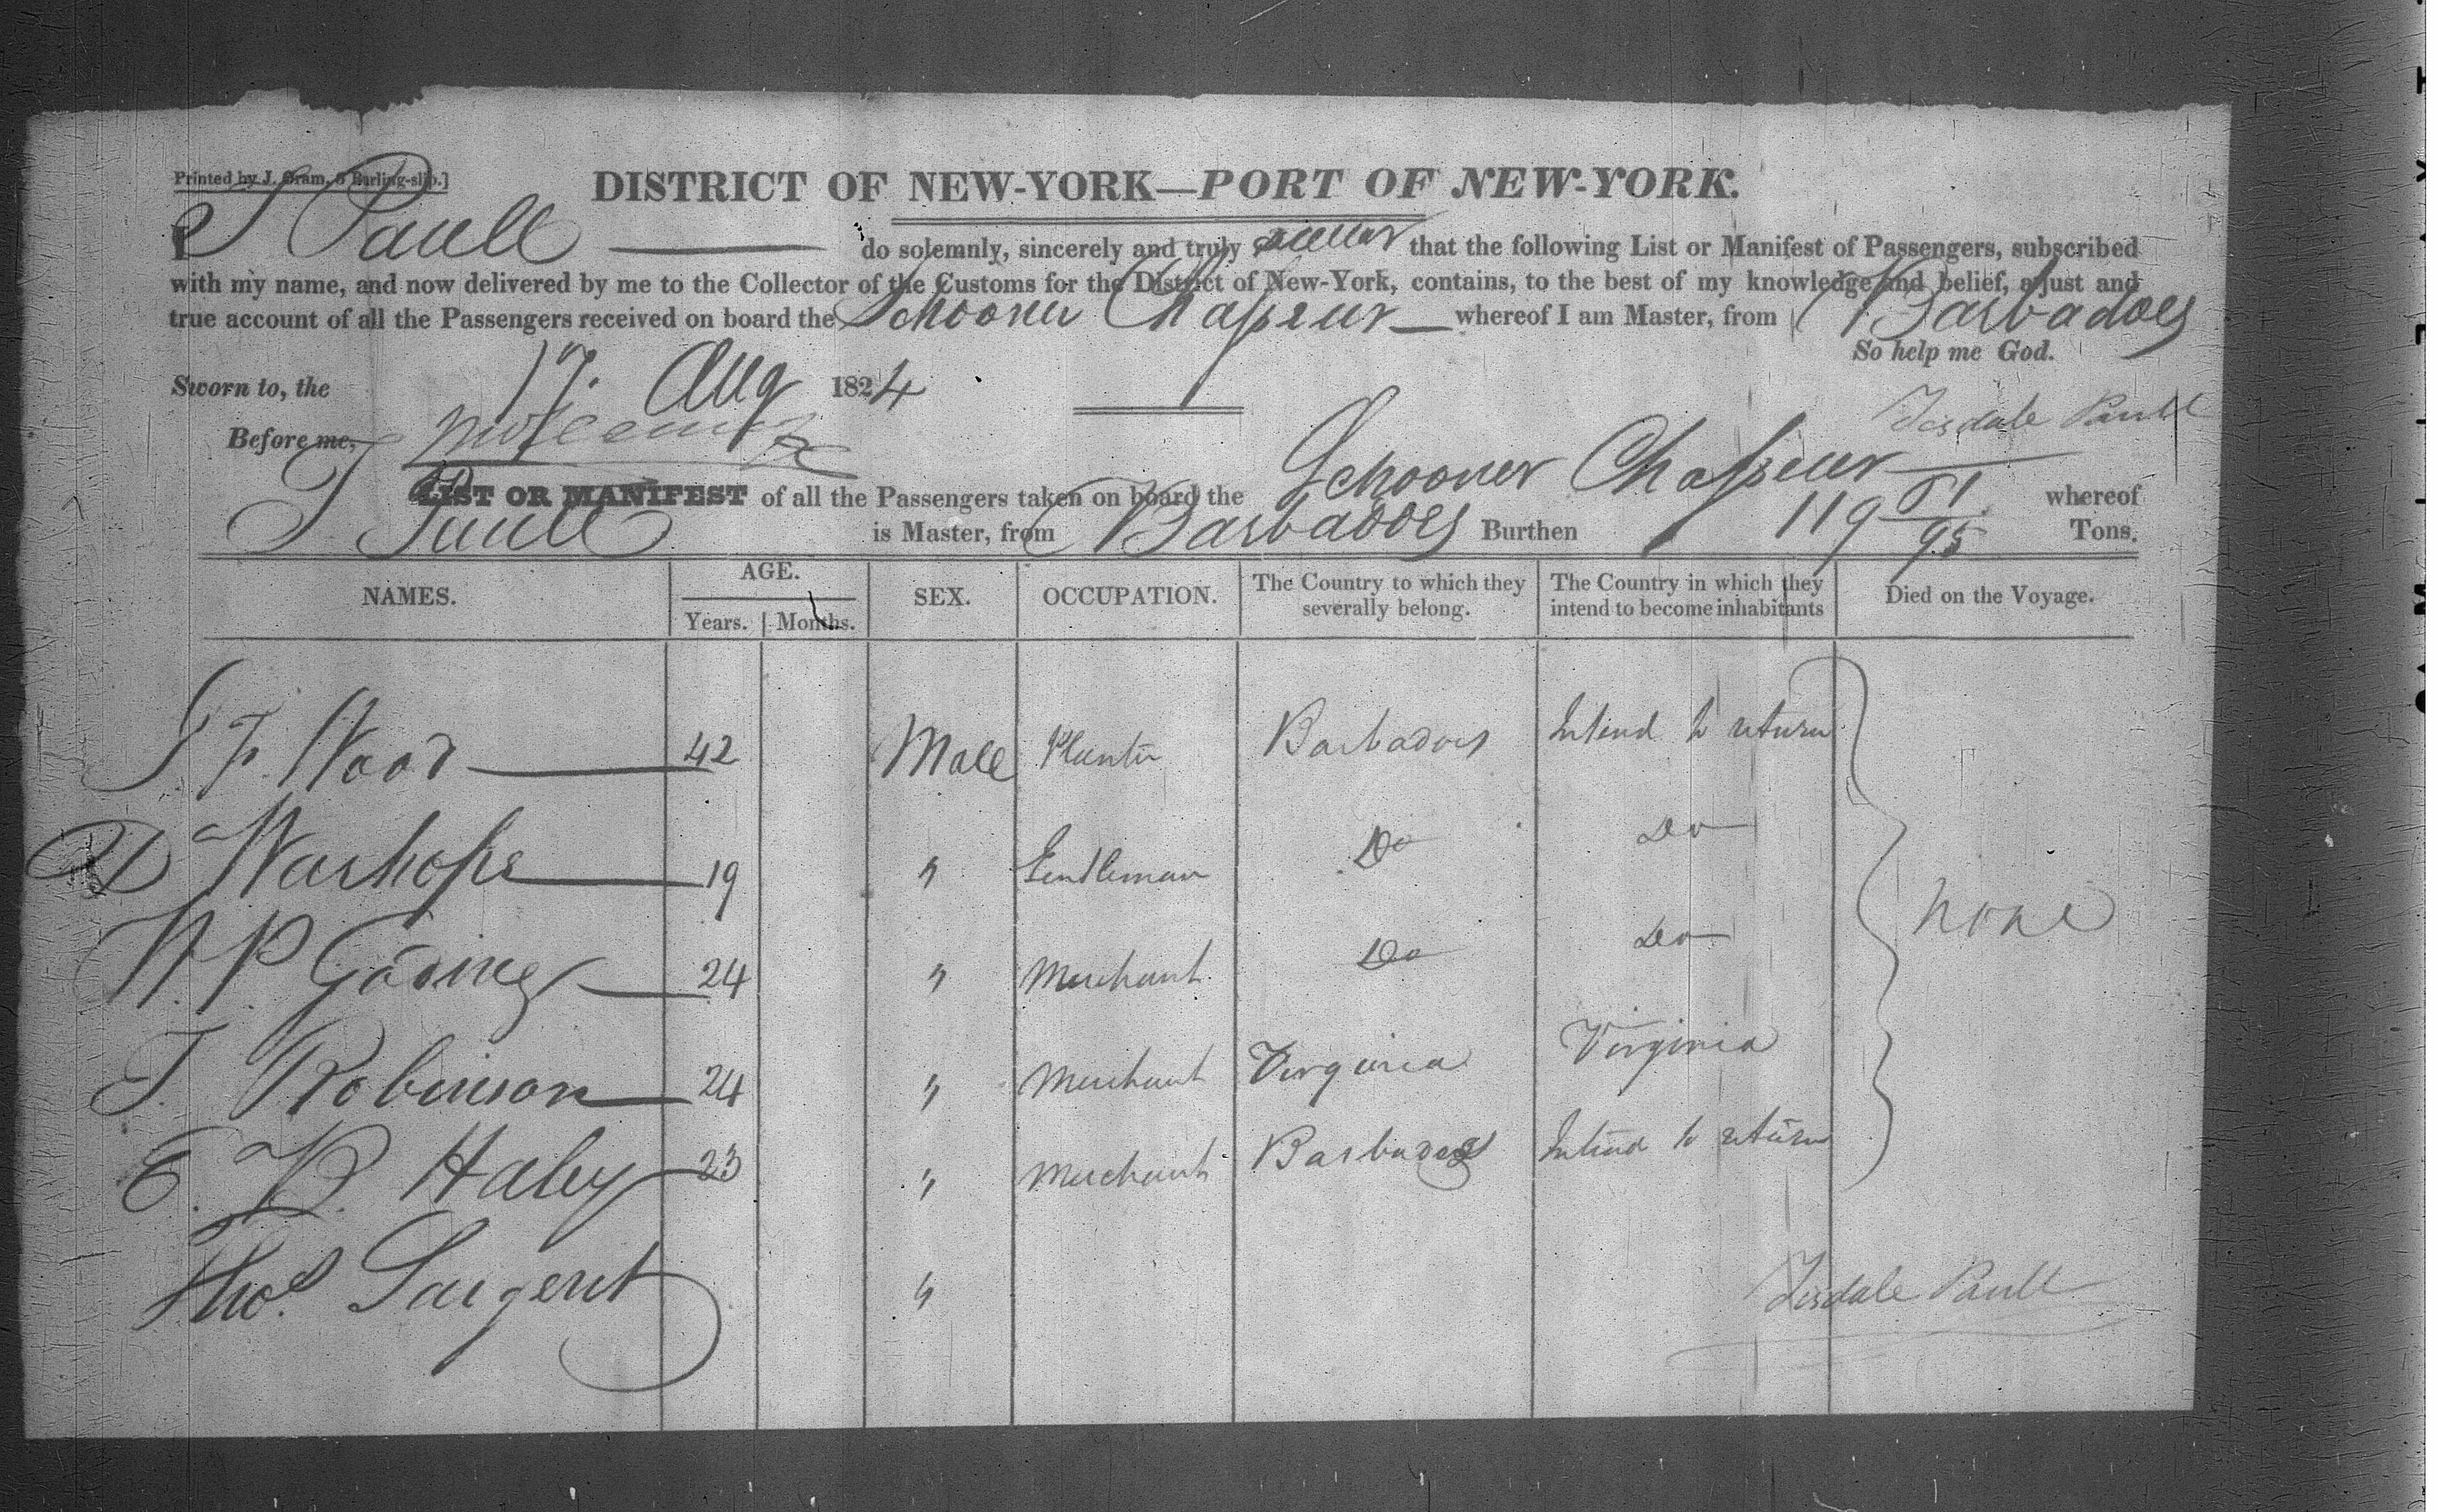 Printed by J. Gram, 5 Burling-slip.]
DISTRICT OF NEW-YORK—PORT OF NEW-YORK.
I T Paull do solemnly, sincerely and truly swear that the following List or Manifest of Passengers, subscribed
with my name, and now delivered by me to the Collector of the Customs for the District of New-York, contains, to the best of my knowledge and belief, a just and
true account of all the Passengers received on board the Schooner Chasseur whereof I am Master, from Barbadoes
So help me God.
Sworn to, the 17. Aug 1824
Tisdale Paull
Before me,
LIST OR MANIFEST of all the Passengers taken on board the Schooner Chasseur whereof
T Paull is Master, from Barbadoes Burthen 119 51/95 Tons.
NAMES. AGE. SEX. OCCUPATION. The Country to which they severally belong. The Country in which they intend to become inhabitants Died on the Voyage.
Years. Months.
J F. Wood 42 Male Planter Barbadoes Intend to return
D Warhope 19 " Gentleman Do Do
none
W. P. Goding 24 " Merchant. Do Do
T. Robinson 24 " Merchant Virginia Virginia
E. B. Haley 23 " Merchant Barbadoes Intend to return
Thos. Sargent "
Tisdale Paull